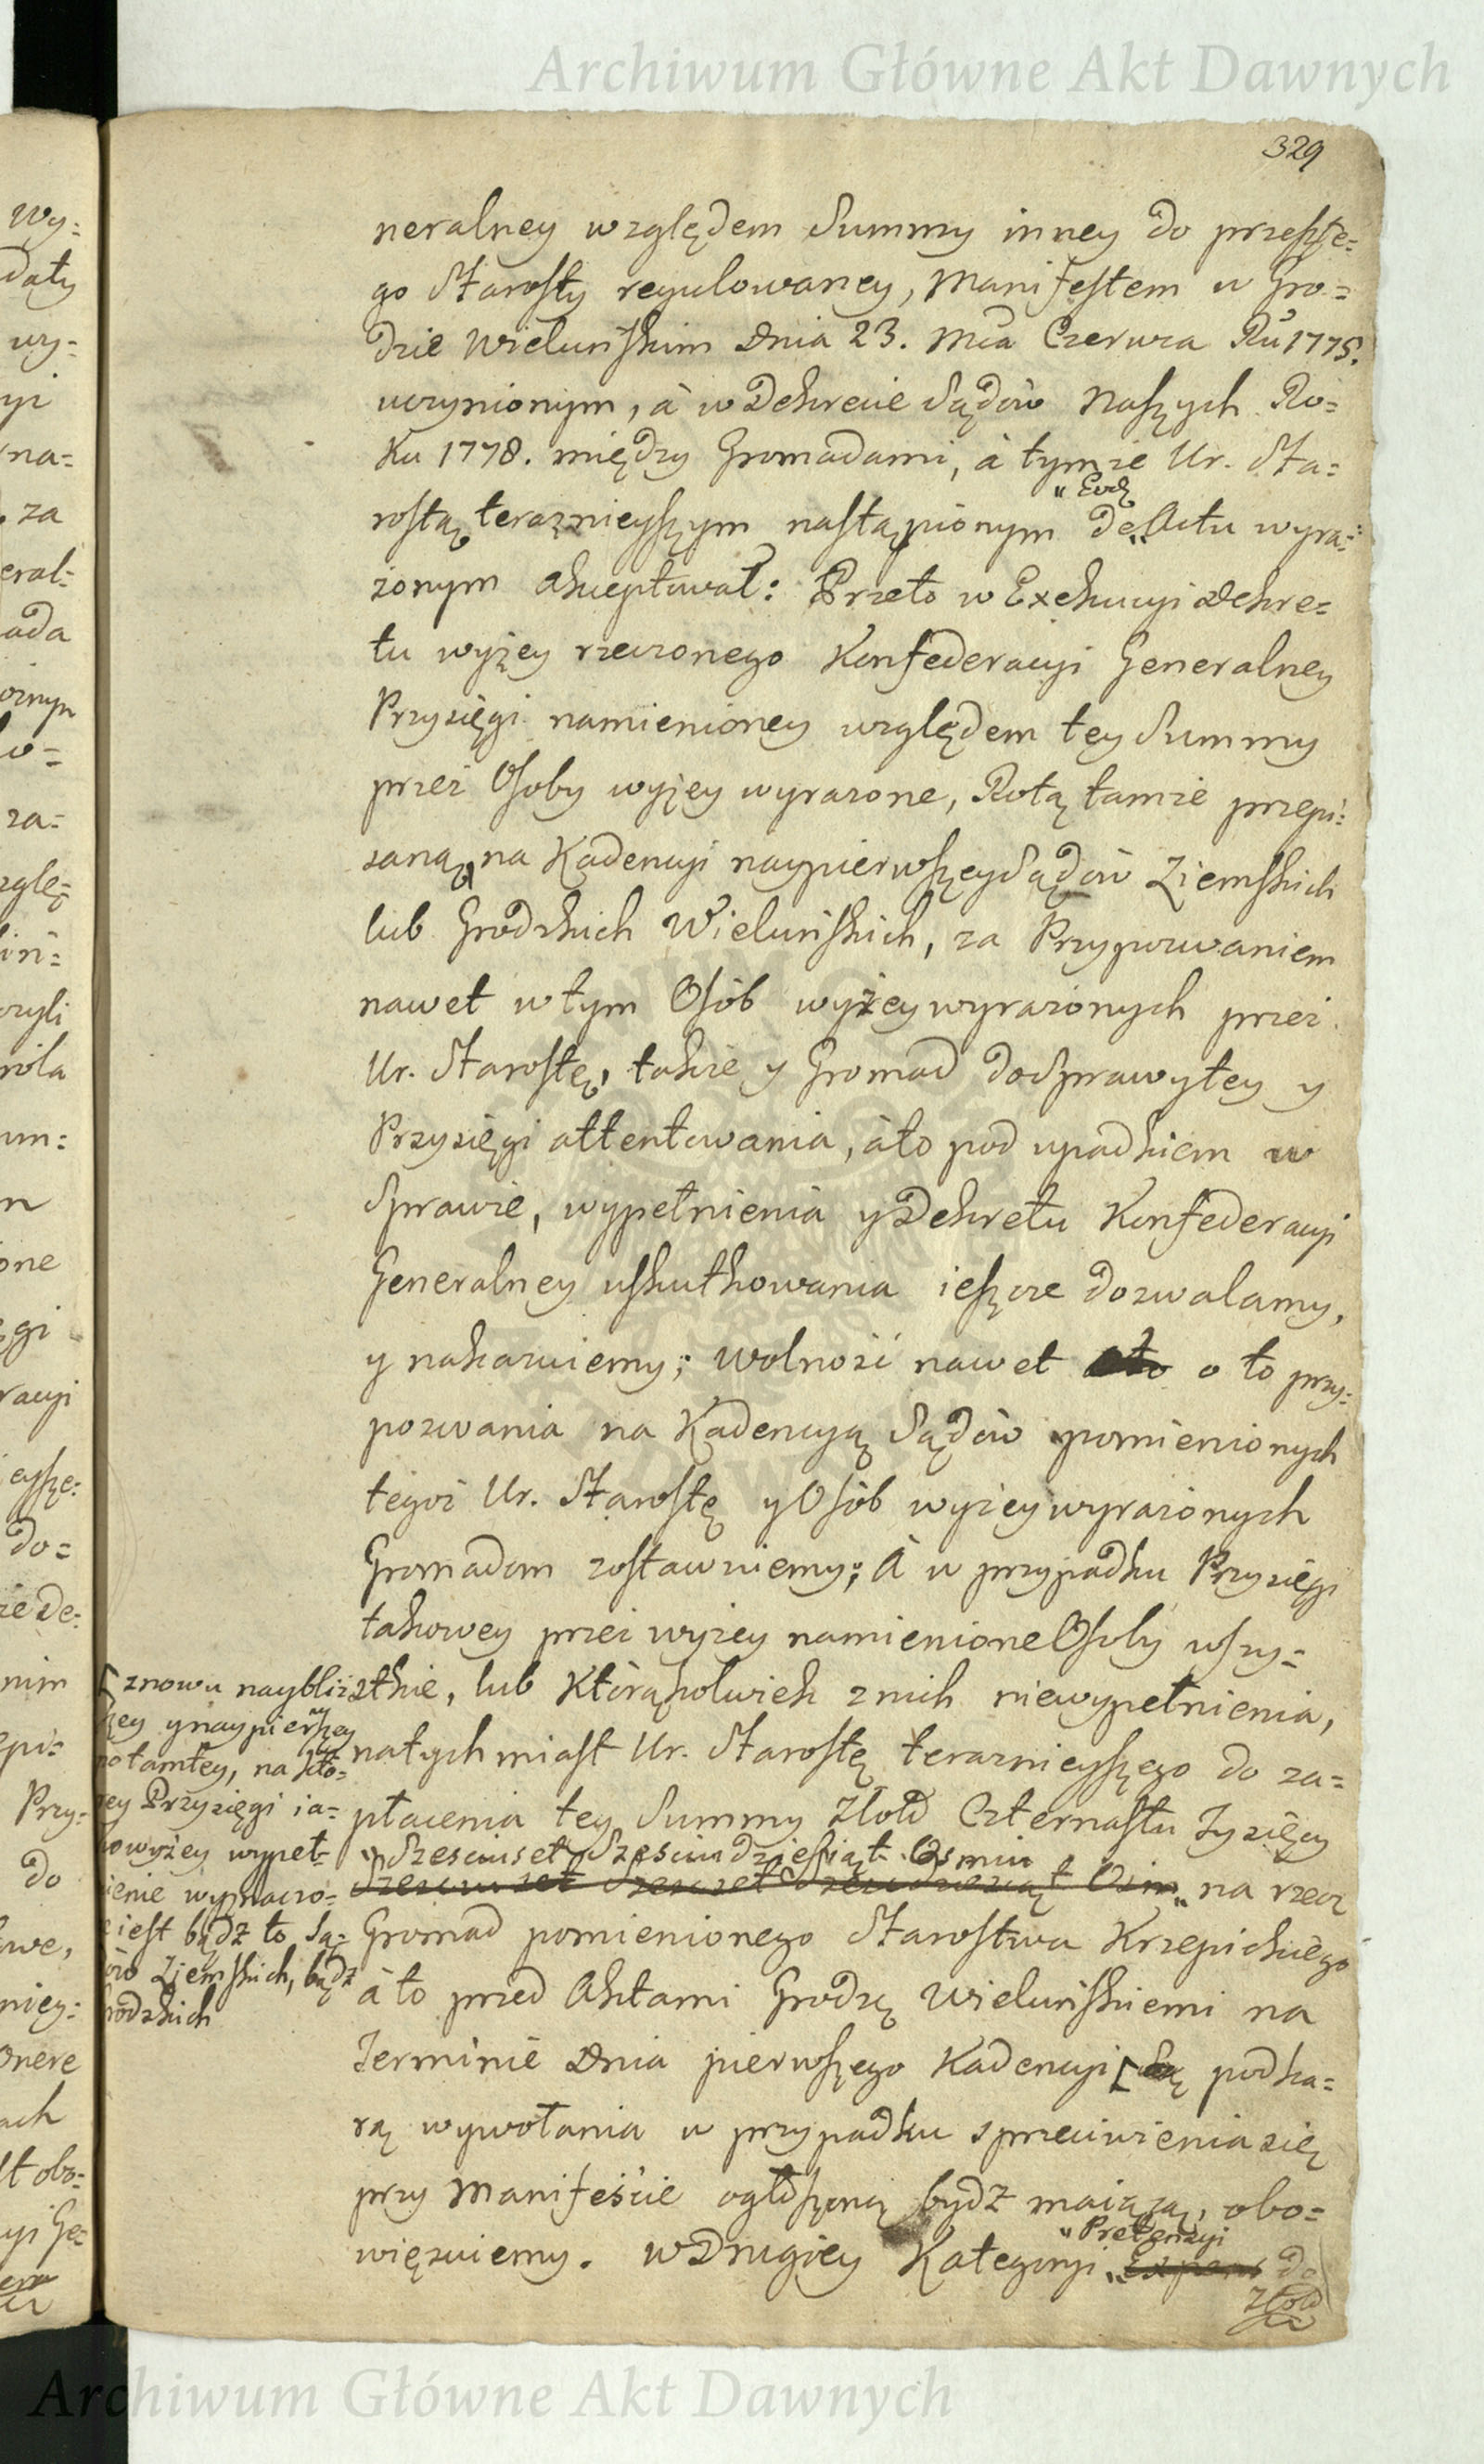 Archiwum Główne Akt Dawnych
329
neralney względem Summy inney do przeszłe=
go Starosty regulowaney, Manifestem w Gro=
dzie Wieluńskim Dnia 23. Mca Czerwca Ru 1775.
uczynionym, à w Dekrecie Sądów Naszych Ro=
ku 1778. między Gromadami, à tymże Ur. Sta=
" Eod
rostą teraznieyszym nastąpionym de „Actu wyra=
żonym akceptował: Przeto w Exekucyi Dekre=
tu wyżey rzeczonego Konfederacyi Generalney
Przysięgi namienioney względem tey Summy
przez Osoby wyżey wyrazone, Rotą tamze przepi=
saną, na Kadencyi naypierwszey Sądów Ziemskich
lub Grodzkich Wieluńskich, za Przypozwaniem
nawet w tym Osób wyżey wyrazonych przez
Ur. Starostę, także y Gromad do Sprawy tey y
Przysięgi attentowania, à to pod upadkiem w
Sprawie, wypełnienia y Dekretu Konfederacyi
Generalney uskutkowania ieszcze dozwalamy,
y nakazuiemy; wolność nawet o to przy=
pozwania na Kadencyą Sądów pomienionych
tegoż Ur. Starostę y Osób wyżey wyrazonych
Gromadom zostawuiemy; À w przypadku Przysięgi
takowey przez wyżey namienione Osoby wszy=
stkie, lub którąkolwiek z nich niewypełnienia,
natychmiast Ur. Starostę teraznieyszego do za=
płacenia tey Summy Złotd Czternastu Tysięcy
" Szesciuset Szesciudziesiąt Osmiu
Szesciuset Szescset Szescdziesiąt Osm „ na rzecz
Gromad pomienionego Starostwa Krzepickiego
à to przed Aktami Grodzę Wieluńskiemi na
Terminie Dnia pierwszego Kadencyi [ pod ka=
rą wywołania w przypadku sprzeciwienia się
przy Manifeście ogłoszoną bydź maiącą, obo=
więzuiemy. W Drugiey Kategoryi
" Pretensyi
„ Expens do
Złotd
[ znowu nayblisz
szey y naypierwszey
po tamtey, na któ=
rey Przysięgi ia=
ko wyżey wypeł=
nienie wyznaczo=
ne iest bądz to Są=
dów Ziemskich, bądz
Grodzkich
Archiwum Główne Akt Dawnych